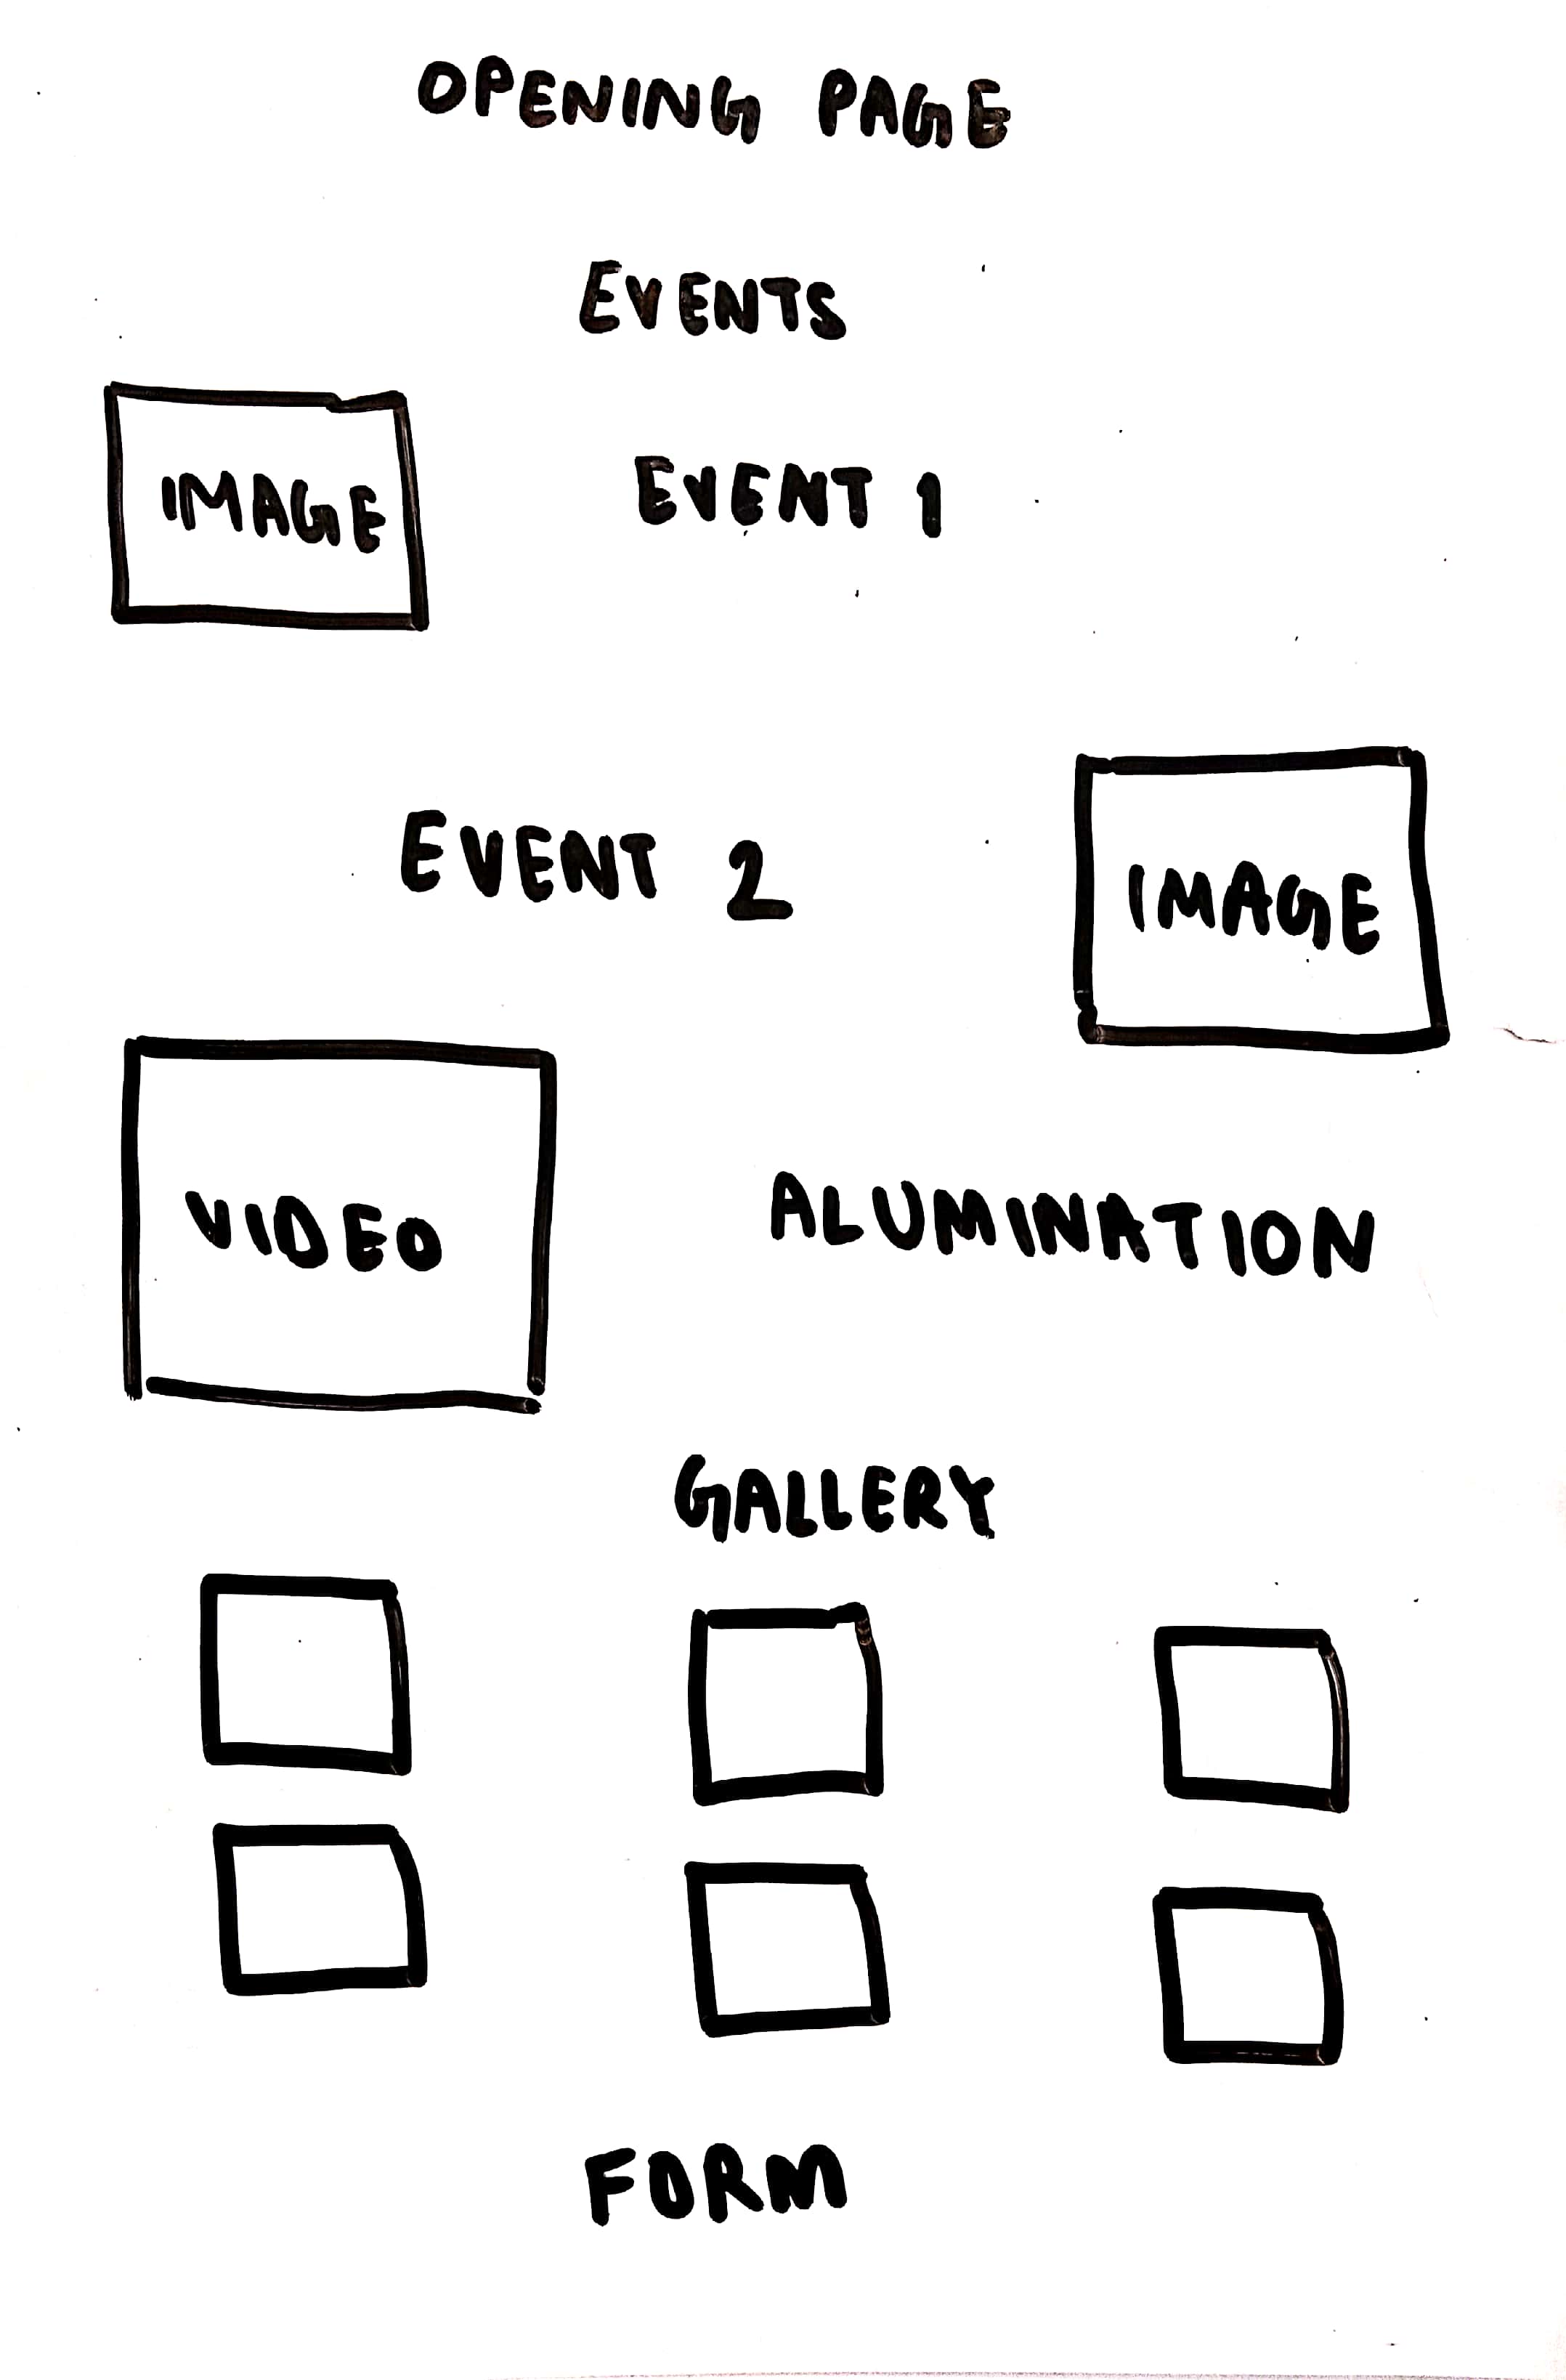 OPENING PAGE
EVENTS
IMAGE
EVENT 1
EVENT 2
IMAGE
VIDEO
ALUMINATION
GALLERY
FORM